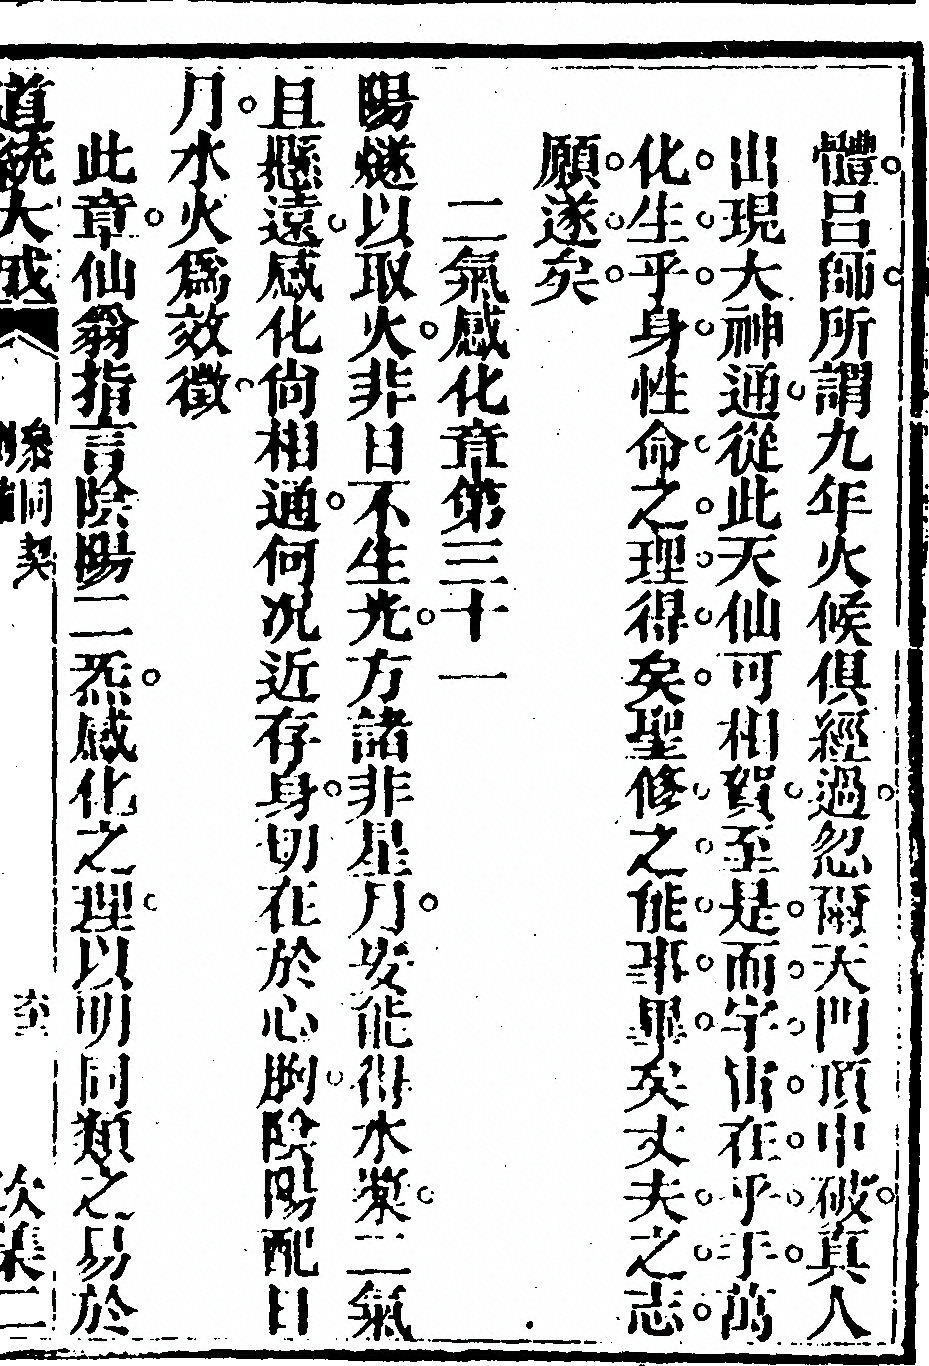 體呂師所謂九年火候俱經過忽爾天門頂中破真人
出現大神通從此天仙可相賀至是而宇宙在乎手萬
化生乎身性命之理得矣聖修之能事畢矣丈夫之志
願遂矣
二氣感化章第三十一
陽燧以取火非日不生光方諸非星月安能得水漿二氣
且懸遠感化尚相通何況近存身切在於心胸陰陽配日
月水火為效徵
此章仙翁指言陰陽二炁感化之理以明同類之易於
道統大成
參同契